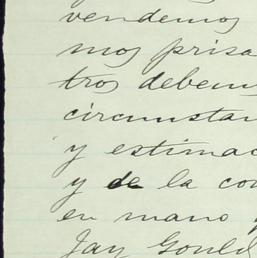 vendemos
mos prisa
tros debem
circumstan
y estimac
y de la co
en mano y
Jay Gould